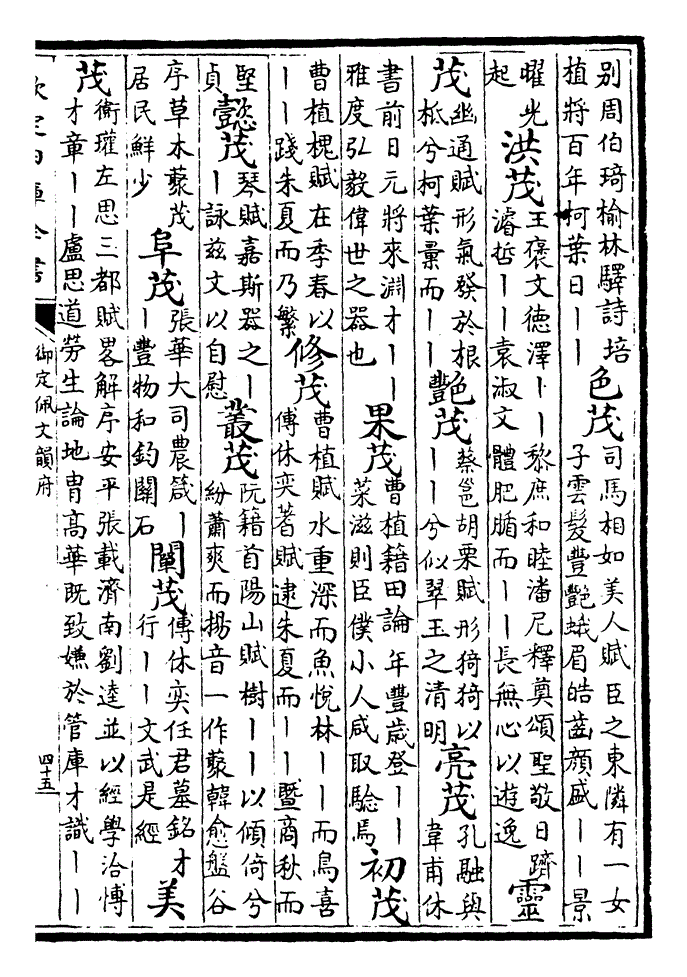 別周伯琦榆林驛詩培
植將百年柯葉日丨丨
色茂
司馬相如美人賦臣之東隣有一女
子雲髮豐艷蛾眉皓齒顏盛丨丨景
曜光
起
洪茂
王褒文德澤丨丨黎庶和睦潘尼釋奠頌聖敬日躋
濬哲丨丨袁淑文體肥腯而丨丨長無心以遊逸
靈
茂
幽通賦形氣發於根
柢兮柯葉彙而丨丨
艷茂
蔡邕胡栗賦形猗猗以
丨丨兮似翠玉之清明
亮茂
孔融與
韋甫休
書前日元將來淵才丨丨
雅度弘毅偉世之器也
果茂
曹植籍田論年豐歲登丨丨
菜滋則臣僕小人咸取驗焉
初茂
曹植槐賦在季春以
丨丨踐朱夏而乃繁
修茂
曹植賦水重深而魚悅林丨丨而鳥喜
傅休奕蓍賦逮朱夏而丨丨暨商秋而
堅
貞
懿茂
琴賦嘉斯器之丨
丨詠茲文以自慰
叢茂
阮籍首陽山賦樹丨丨以傾倚兮
紛蕭爽而揚音一作藂韓愈盤谷
序草木藂茂
居民鮮少
阜茂
張華大司農箴丨
丨豐物和鈞關石
闡茂
傅休奕任君墓銘才
行丨丨文武是經
美
茂
衛瓘左思三都賦畧解序安平張載濟南劉逵並以經學洽博
才章丨丨盧思道勞生論地胄高華既致嫌於管庫才識丨丨
欽定四庫全書
御定佩文韻府
四十五